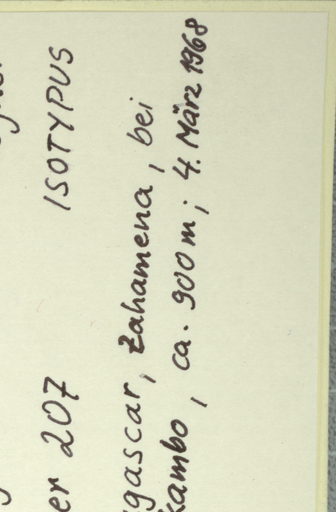 er 207 ISOTYPUS
gascar, Zahamena, bei
kambo, ca. 900 m; 4. März 1968